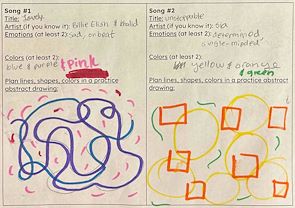 Song #1
Title: Lovely
Artist (if you know it): Billie Eilish & Khalid
Emotions (at least 2): Sad, onbeat
Colors (at least 2):
blue & purple & pink
Plan lines, shapes, colors in a practice
abstract drawing:
Song #2
Title: unstoppable
Artist (if you know it): Sia
Emotions (at least 2): determined
single-minded
Colors (at least 2):
yellow & orange
& green
Plan lines, shapes, colors in a practice
abstract drawing: